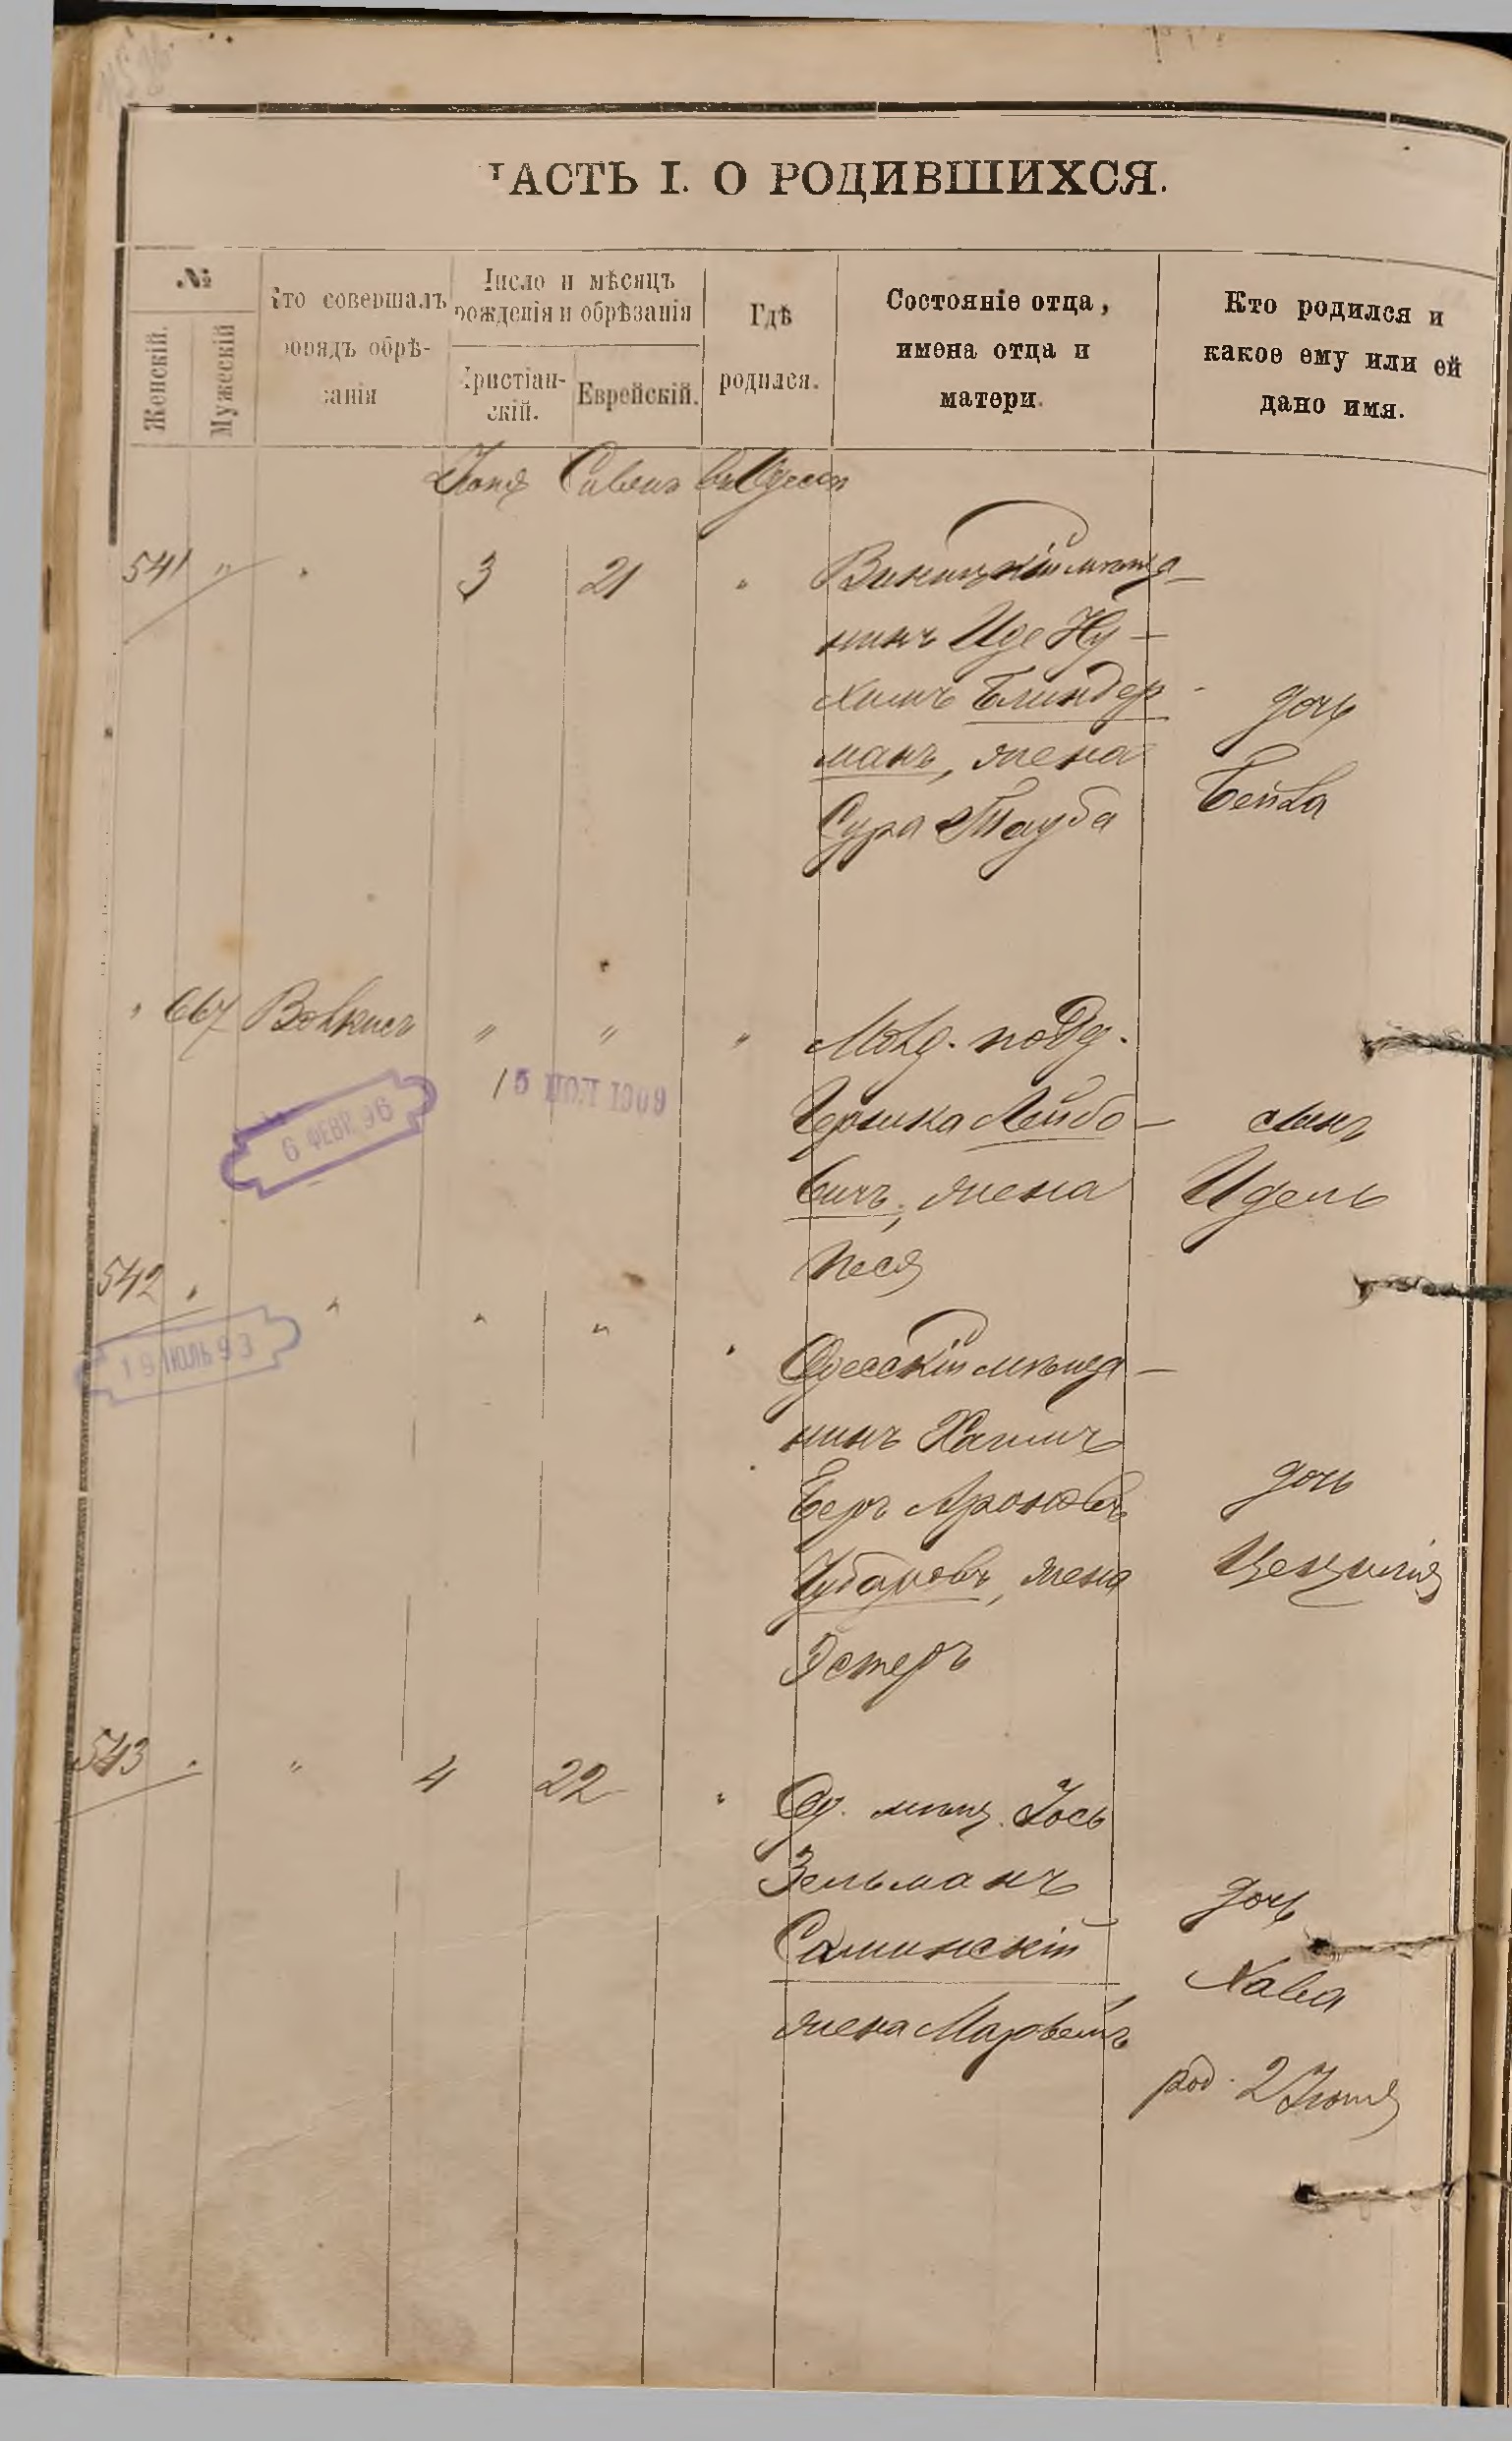 ЧАСТЬ I. О РОДИВШИХСЯ.
№
Женскій.
Мужескій
Кто совершалъ
обрядъ обрѣ-
занія
Число и мѣсяцъ
рожденія и обрѣзанія
Христіан-
скій.
Еврейскій.
Гдѣ
родился.
Состояніе отца,
имена отца и
матери.
Кто родился и
какое ему или ей
дано имя.
Іюня Сивона въ Одессѣ
541 " " 3 21 " Виницкій мѣща-
нинъ Иде Ну-
химъ Блиндер-
манъ, жена
Сура Тауба
дочь
Бейла
" 667 Волкисъ " " " Молд. подд.
Гершка Лейбо-
вичъ, жена
Песя
сынъ
Идель
6 ФЕВР. 96
15 1909
542 " " " " " Одесскій мѣща-
нинъ Хаимъ
Беръ Ароновъ
Чубаровъ, жена
Эстеръ
дочь
Цецилія
19 ІЮЛЬ 93
543 " " 4 22 " Од. мѣщ. Іось
Зельманъ
Саминскій
жена
дочь
Хава
род. 2 Іюня